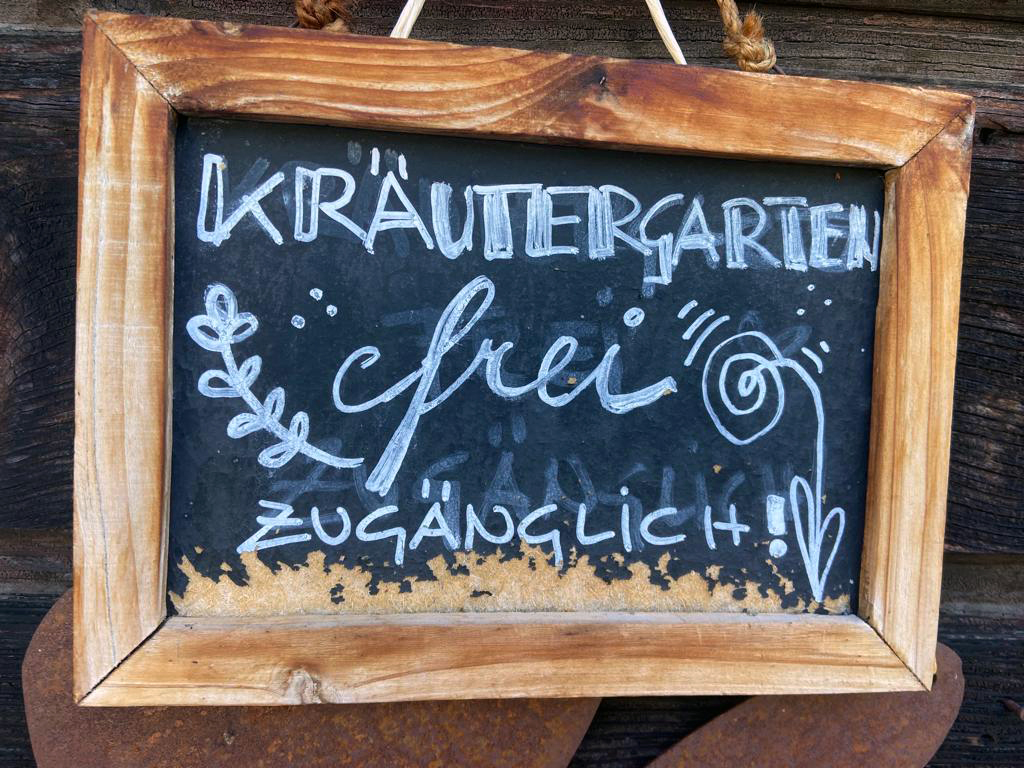 KRÄUTERGARTEN
frei
ZUGÄNGLICH!